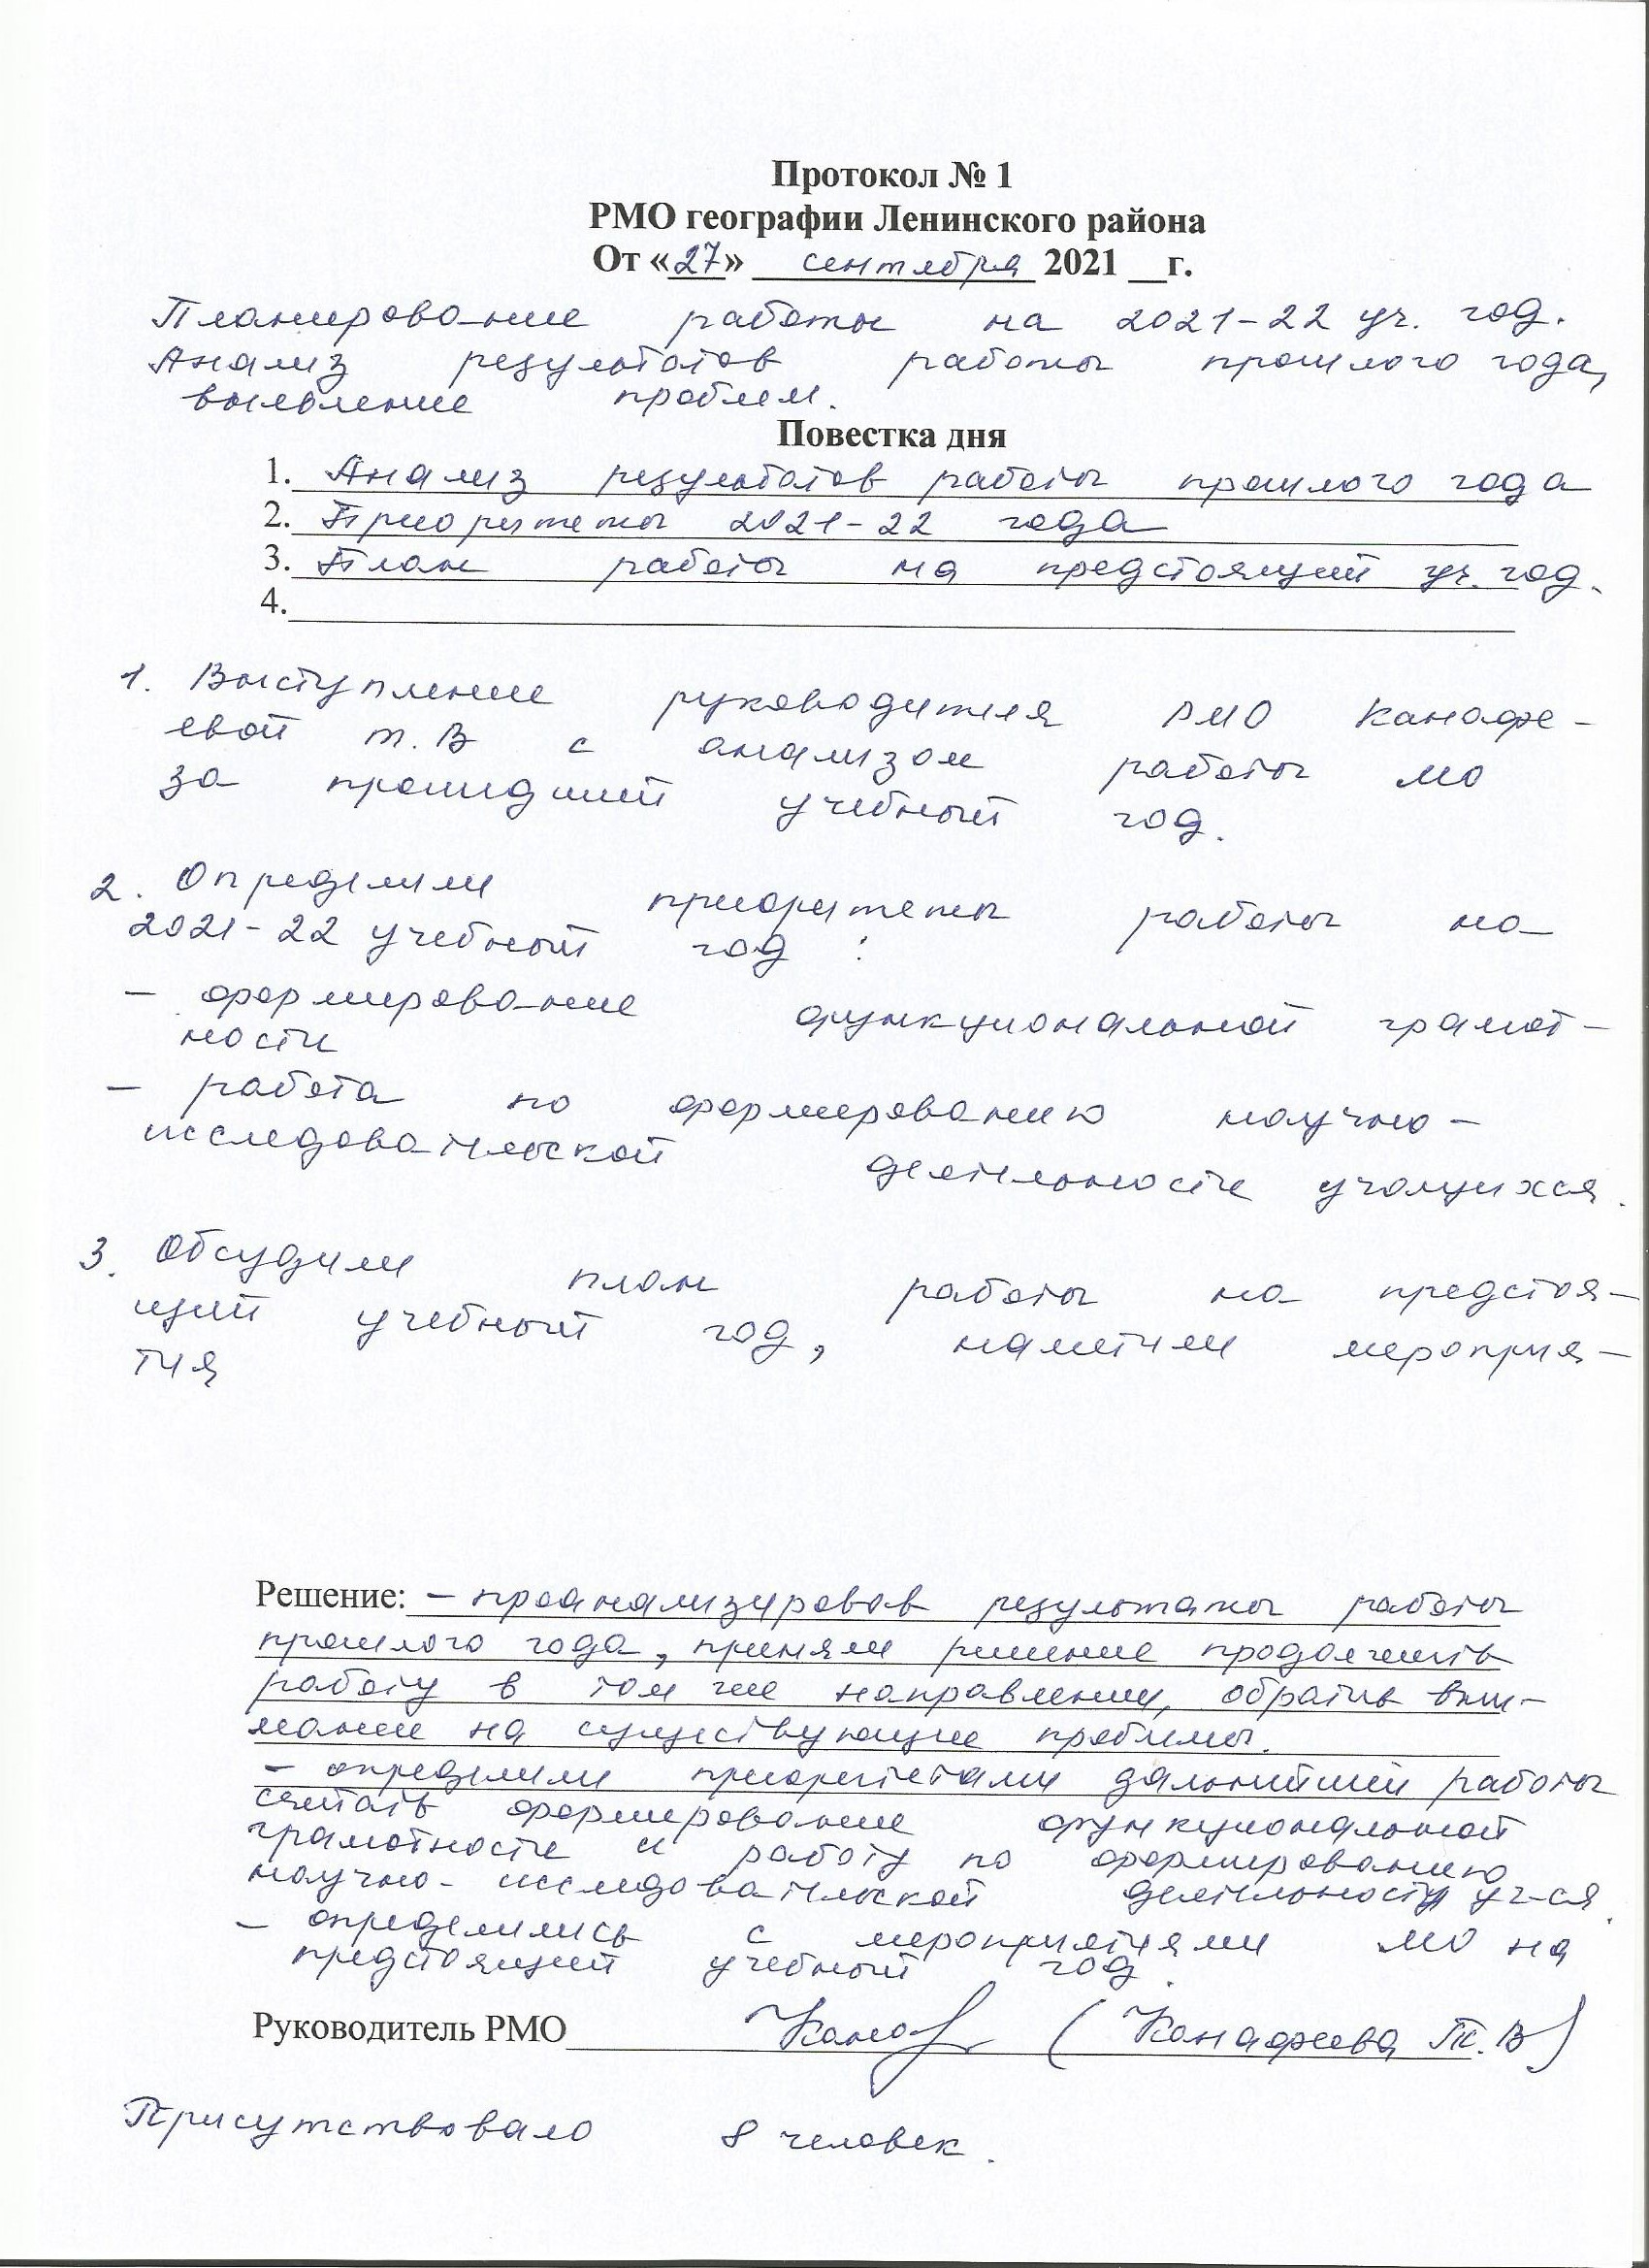 Протокол № 1
РМО географии Ленинского района
От «27» сентября 2021 __г.
Планирование работы на 2021-22 уч. год.
Анализ результатов работы прошлого года,
выявление проблем.
Повестка дня
1. Анализ результатов работы прошлого года
2. Приоритеты 2021-22 года
3. План работы на предстоящий уч. год.
4.
1. Выступление руководителя РМО Канафе-
евой Т.В с анализом работы МО
за прошедший учебный год.
2. Определили приоритеты работы на
2021-22 учебный год :
- формирование функциональной грамот-
ности
- работа по формированию научно-
исследовательской деятельности учащихся.
3. Обсудили план работы на предстоя-
щий учебный год, наметили мероприя-
тия
Решение: - проанализировав результаты работы
прошлого года, приняли решение продолжить
работу в том же направлении, обратив вни-
мание на существующие проблемы.
- определили приоритетами дальнейшей работы
считать формирование функциональной
грамотности и работу по формированию
научно-исследовательской деятельности уч-ся.
- определились с мероприятиями МО на
предстоящий учебный год.
Руководитель РМО Канаф (Канафеева Т.В)
Присутствовало 8 человек.